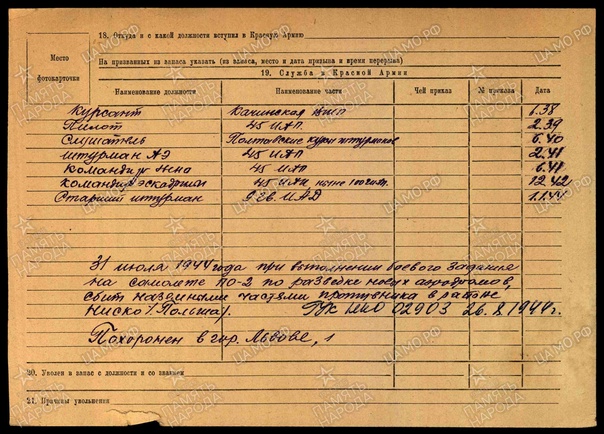 18. Откуда и с какой должности вступил в Красную Армию
Место
фотокарточки
На призванных из запаса указать (из запаса, место и дата призыва и время перерыва)
19. Служба в Красной Армии
Наименование должности Наименование части Чей приказ № приказа Дата
Курсант Качинская ВШП 6.38
Пилот 45 ИАП 2.39
Слушатель Полтавские курсы штурманов 6.40
Штурман АЭ 45 ИАП 2.41
Командир звена 45 ИАП 6.41
Командир эскадрильи 45 ИАП ныне 100 гиап. 12.42
Старший штурман 9 Гв. ИАД 1.1.44
31 июля 1944 года при выполнении боевого задания
на самолете ПО-2 по разведке новых аэродромов,
сбит наземными частями противника в районе
Ниско /Польша/. ГУК НКО 02903 26.8.1944г.
Похоронен в гор. Львове,
20. Уволен в запас с должности и со званием
21. Причины увольнения
ПАМЯТЬ НАРОДА
ЦАМО.РФ